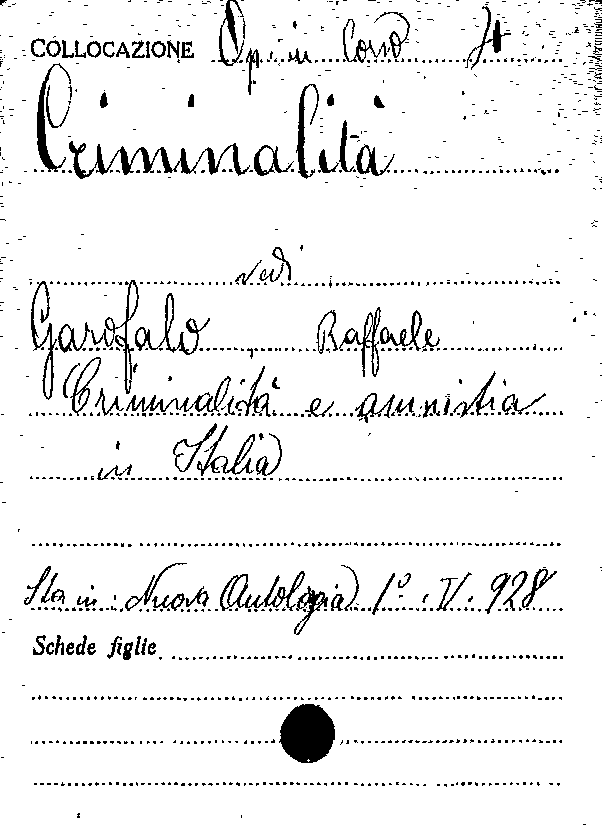 COLLOCAZIONE Op. in Corso
Criminalità
vedi
Garofalo, Raffaele
Criminalità e amnistia
in Italia
Sta in: Nuova Antologia 1º. V. 928
Schede figlie